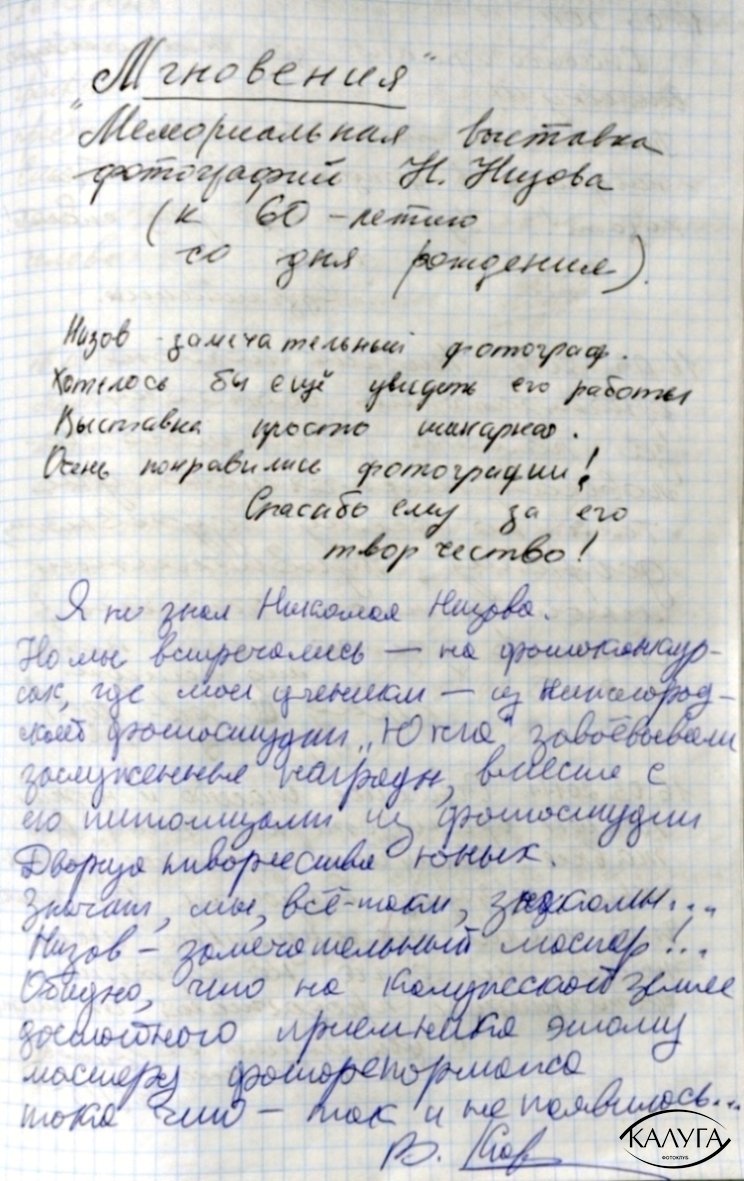 "Мгновения"
Мемориальная выставка
фотографий Н. Низова
(к 60-летию
со дня рождения).
Низов - замечательный фотограф.
Хотелось бы ещё увидеть его работы
Выставка просто шикарная.
Очень понравились фотографии!
Спасибо ему за его
творчество!
Я не знал Николая Низова.
Но мы встречались — на фотоконкур-
сах, где мои ученики — из нижегород-
ской фотостудии "Юкга" завоёвывали
заслуженные награды, вместе с
его питомцами из фотостудии
Дворца творчества юных.
Значит, мы, всё-таки, знакомы...
Низов - замечательный мастер!..
Обидно, что на Калужской земле
достойного приемника этому
мастеру фоторепортажа
пока что - так и не появилось...
В.
КАЛУГА
ФОТОКЛУБ